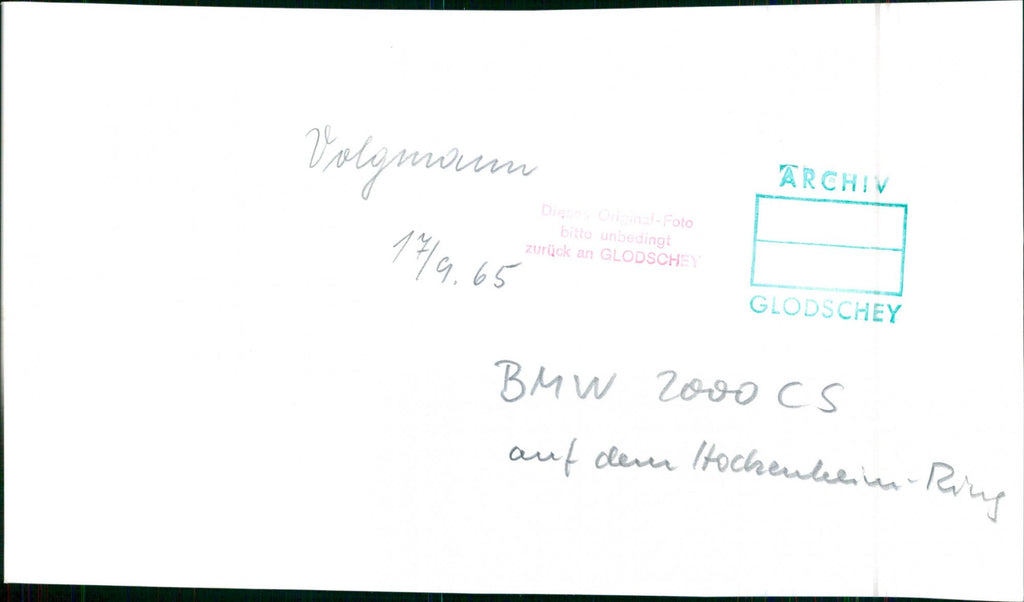 Volgmann
17/9. 65
Dieses Original-Foto
bitte unbedingt
zurück an GLODSCHEY
ARCHIV
GLODSCHEY
BMW 2000 CS
auf dem Hockenheim-Ring